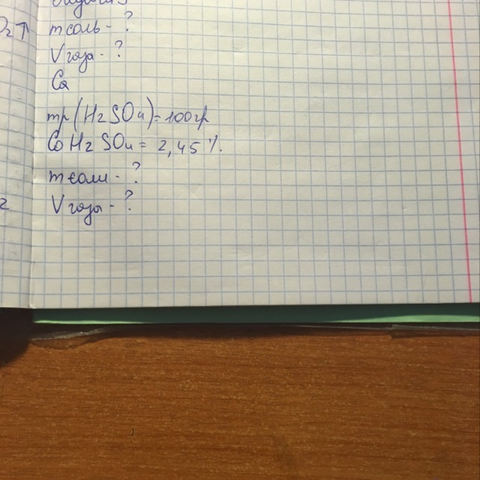 O₂↑
m соль - ?
V газа - ?
Ca
mр (H₂SO₄) = 100гр
ω H₂SO₄ = 2,45 %.
m соли - ?
2
V газа - ?